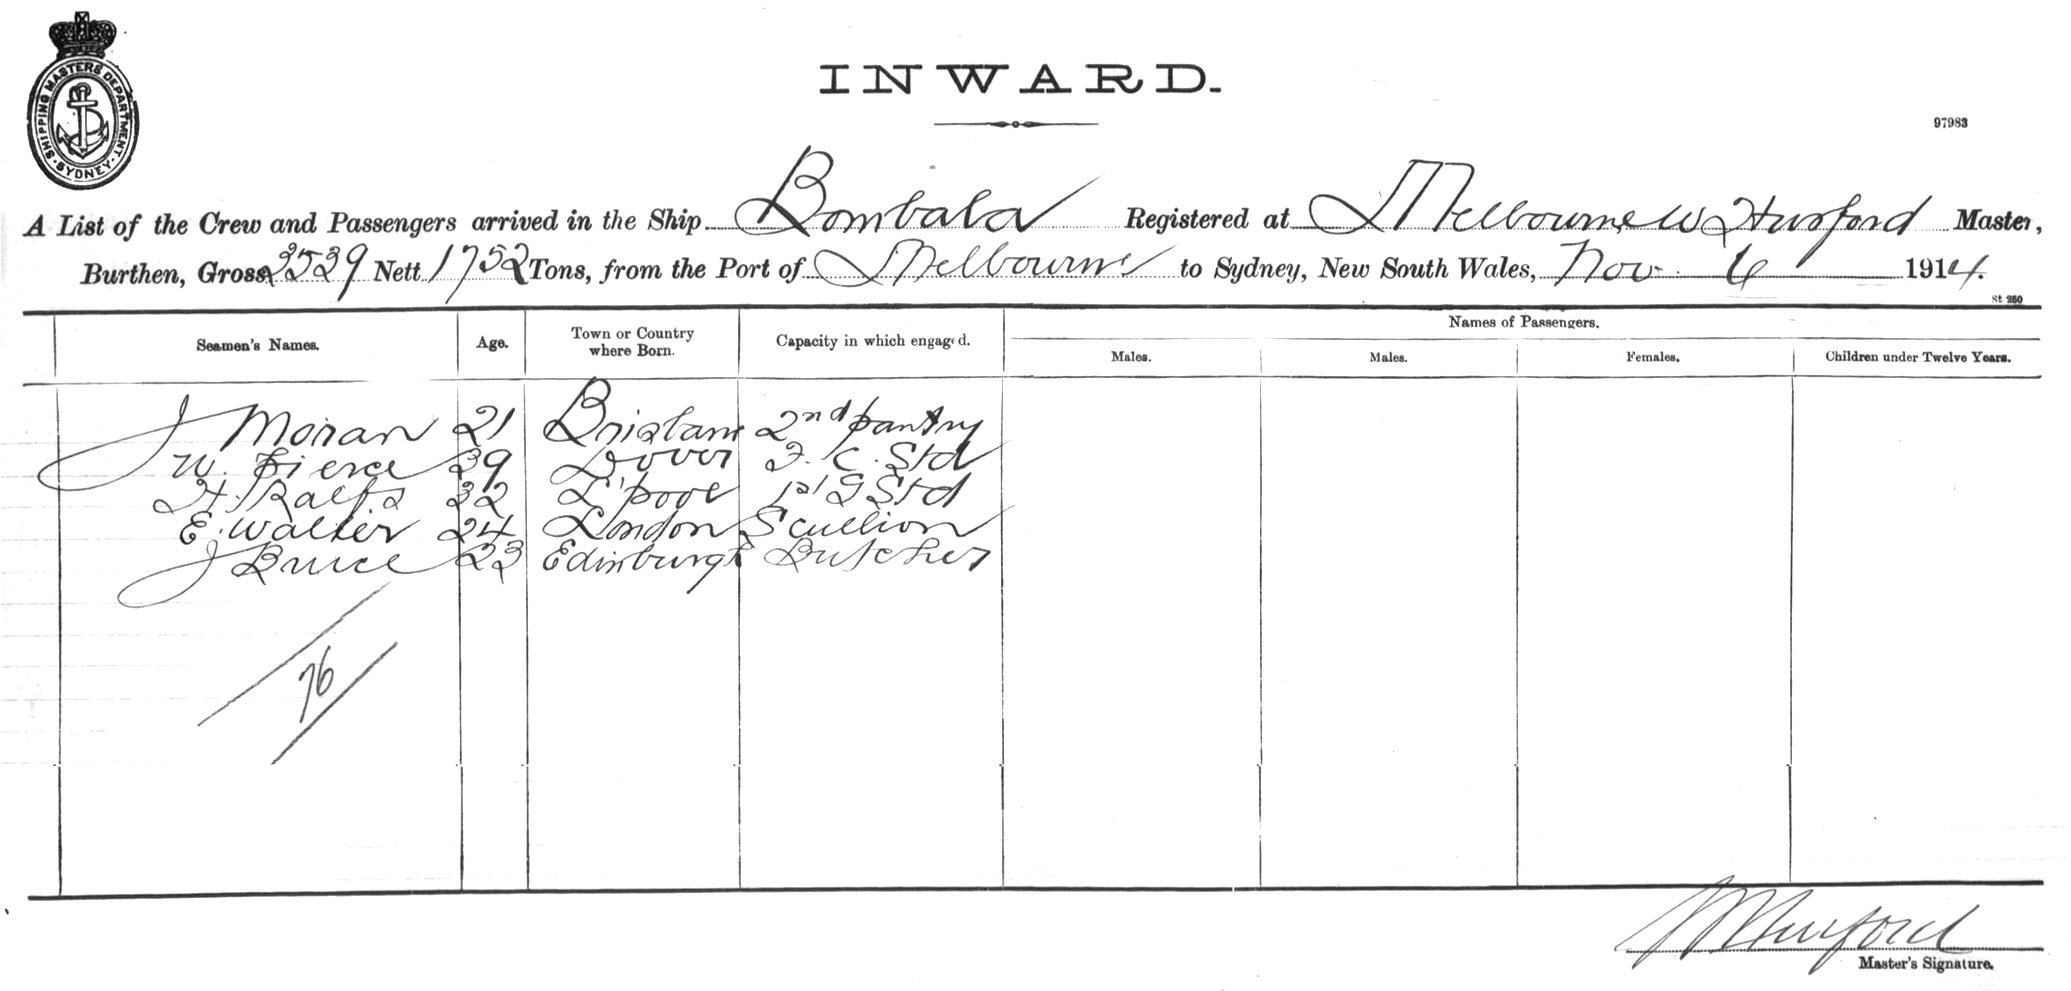 SHIPPING MASTERS DEPARTMENT. SYDNEY.
INWARD.
97983
A List of the Crew and Passengers arrived in the Ship Bombala Registered at Melbourne W Hurford Master,
Burthen, Gross 3539 Nett 1752 Tons, from the Port of Melbourne to Sydney, New South Wales, Nov. 6 1914.
St 250
Seamen's Names. Age. Town or Country where Born. Capacity in which engaged. Names of Passengers.
Males. Males. Females. Children under Twelve Years.
J Moran 21 Brisbane 2nd pantry
W. Pierce 39 Dover F. C. Std
H. Ralfs 32 L'pool 1st G Std
E. Walter 24 London Scullion
J Bruce 23 Edinburgh Butcher
76
Hurford
Master's Signature.